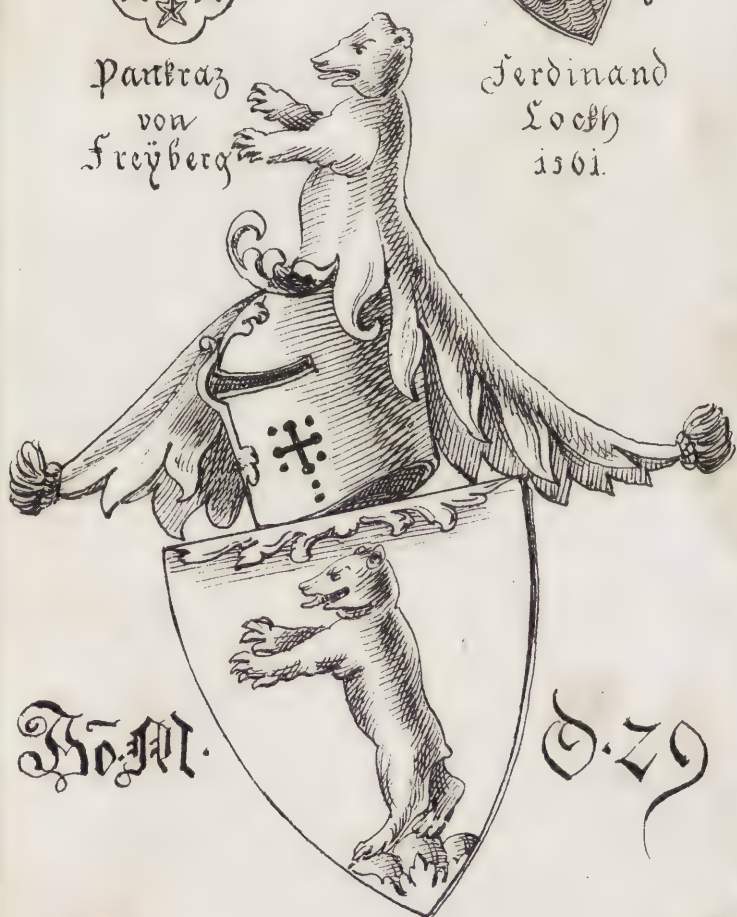 Pankraz
von
Freÿberg
Ferdinand
Lockh
1561.